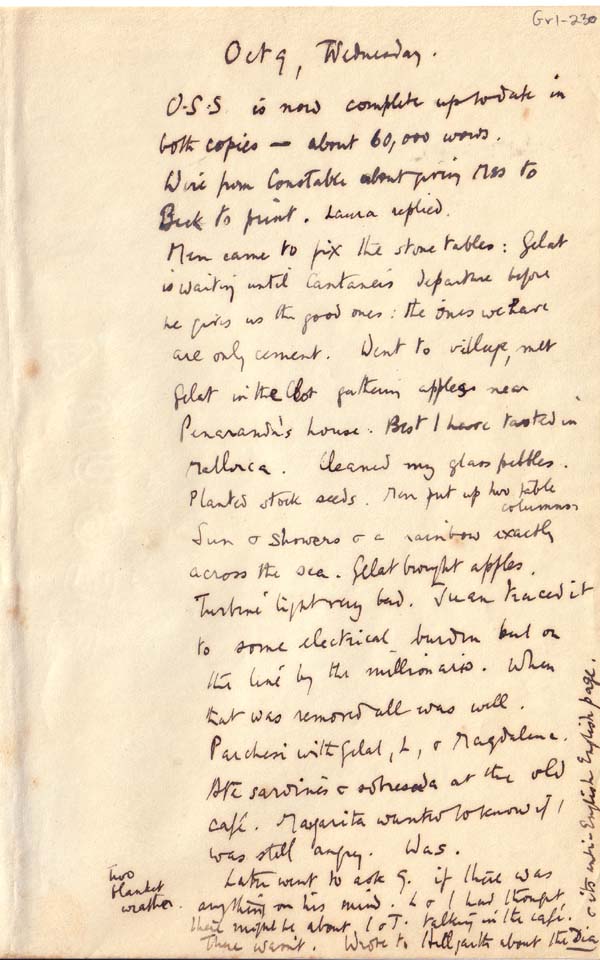 Gr1-230
Oct 9, Wednesday.
O.S.S is now complete up to date in
both copies — about 60,000 words.
Wire from Constable about giving Mss to
Beck to print. Laura replied.
Men came to fix the stone tables: Gelat
is waiting until Cantanei's departure before
he gives us the good ones: the ones we have
are only cement. Went to village, met
Gelat in the Clot gathering apples near
Penaranda's house. Best I have tasted in
Mallorca. Cleaned my glass pebbles.
Planted stock seeds. Men put up two table
columns
Sun & showers & a rainbow exactly
across the sea. Gelat brought apples.
Turbine light very bad. Juan traced it
to some electrical burden put on
the line by the millionaris. When
that was removed all was well.
Parchesi with Gelat, L, & Magdalena.
Ate sardines & sobreseda at the old
café. Magarita wanted to know if I
was still angry. Was.
two
blanket
weather.
Later went to ask G. if there was
anything on his mind. L & I had thought
there might be about I & T. talking in the café.
There wasn't. Wrote to Hillgarth about the Dia
& its anti-English English page.